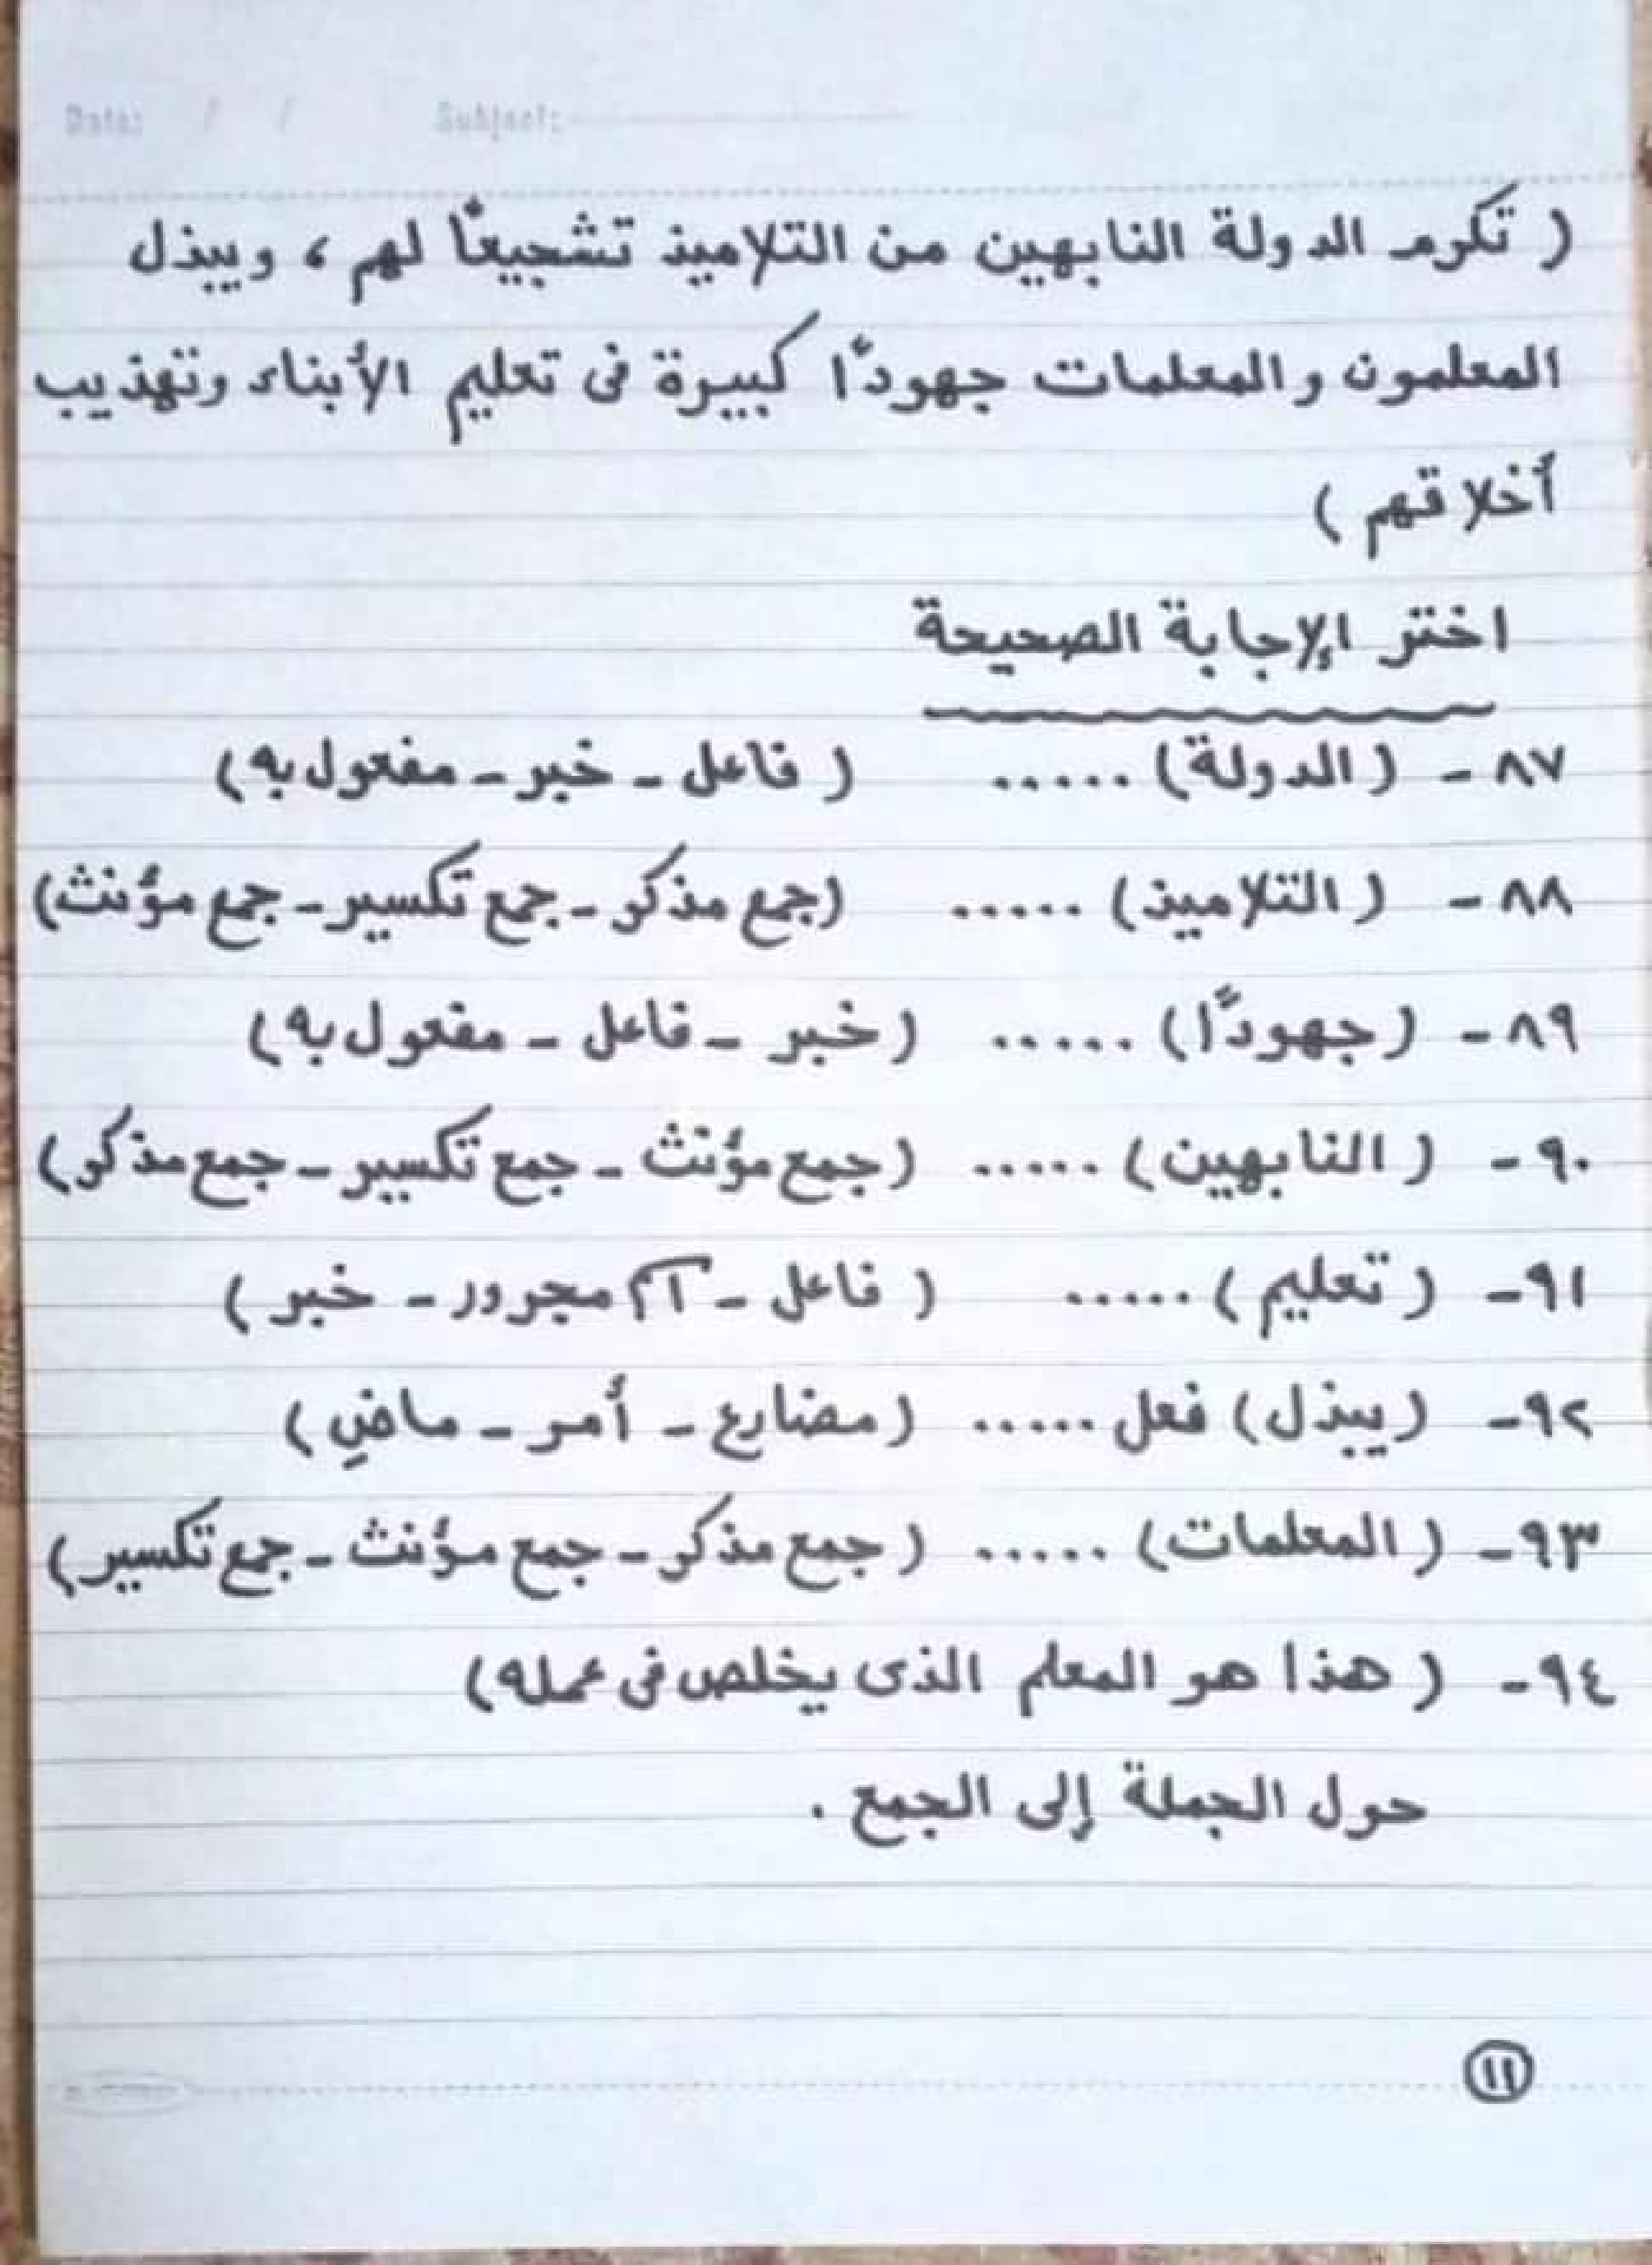 Date: / / Subject:
( تكرم الدولة النابهين من التلاميذ تشجيعًا لهم ، ويبذل
المعلمون والمعلمات جهودًا كبيرة فى تعليم الأبناء وتهذيب
أخلاقهم )
اختر الإجابة الصحيحة
٨٧ - ( الدولة ) ..... ( فاعل - خبر - مفعول به )
٨٨ - ( التلاميذ ) ..... (جمع مذكر - جمع تكسير - جمع مؤنث)
٨٩ - ( جهودًا ) ..... ( خبر - فاعل - مفعول به )
٩٠ - ( النابهين ) ..... ( جمع مؤنث - جمع تكسير - جمع مذكر )
٩١ - ( تعليم ) ..... ( فاعل - اسم مجرور - خبر )
٩٢ - ( يبذل ) فعل ..... ( مضارع - أمر - ماضٍ )
٩٣ - ( المعلمات ) ..... ( جمع مذكر - جمع مؤنث - جمع تكسير )
٩٤ - ( هذا هو المعلم الذى يخلص فى عمله )
حول الجملة إلى الجمع .
١١